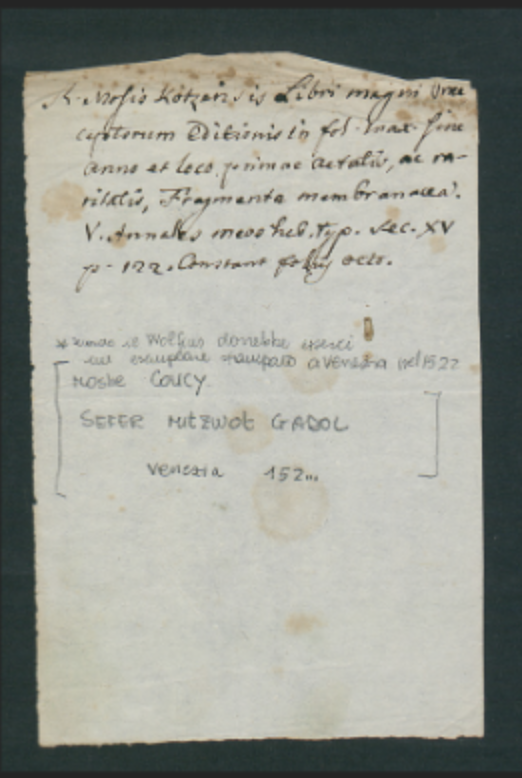 R. Mosis Kotzensis Libri magni Prae
ceptorum Editionis in fol. max. sine
anno et loco primae aetatis, ac ra-
ritatis, Fragmenta membranacea.
V. Annales meos heb. typ. sec. XV
p. 122. Constant foliis octo.
* secondo il Wolfius dovrebbe esserci
un esemplare stampato a Venezia nel 1522
MOSHE COUCY.
SEFER MITZWOT GADOL
Venezia 152...